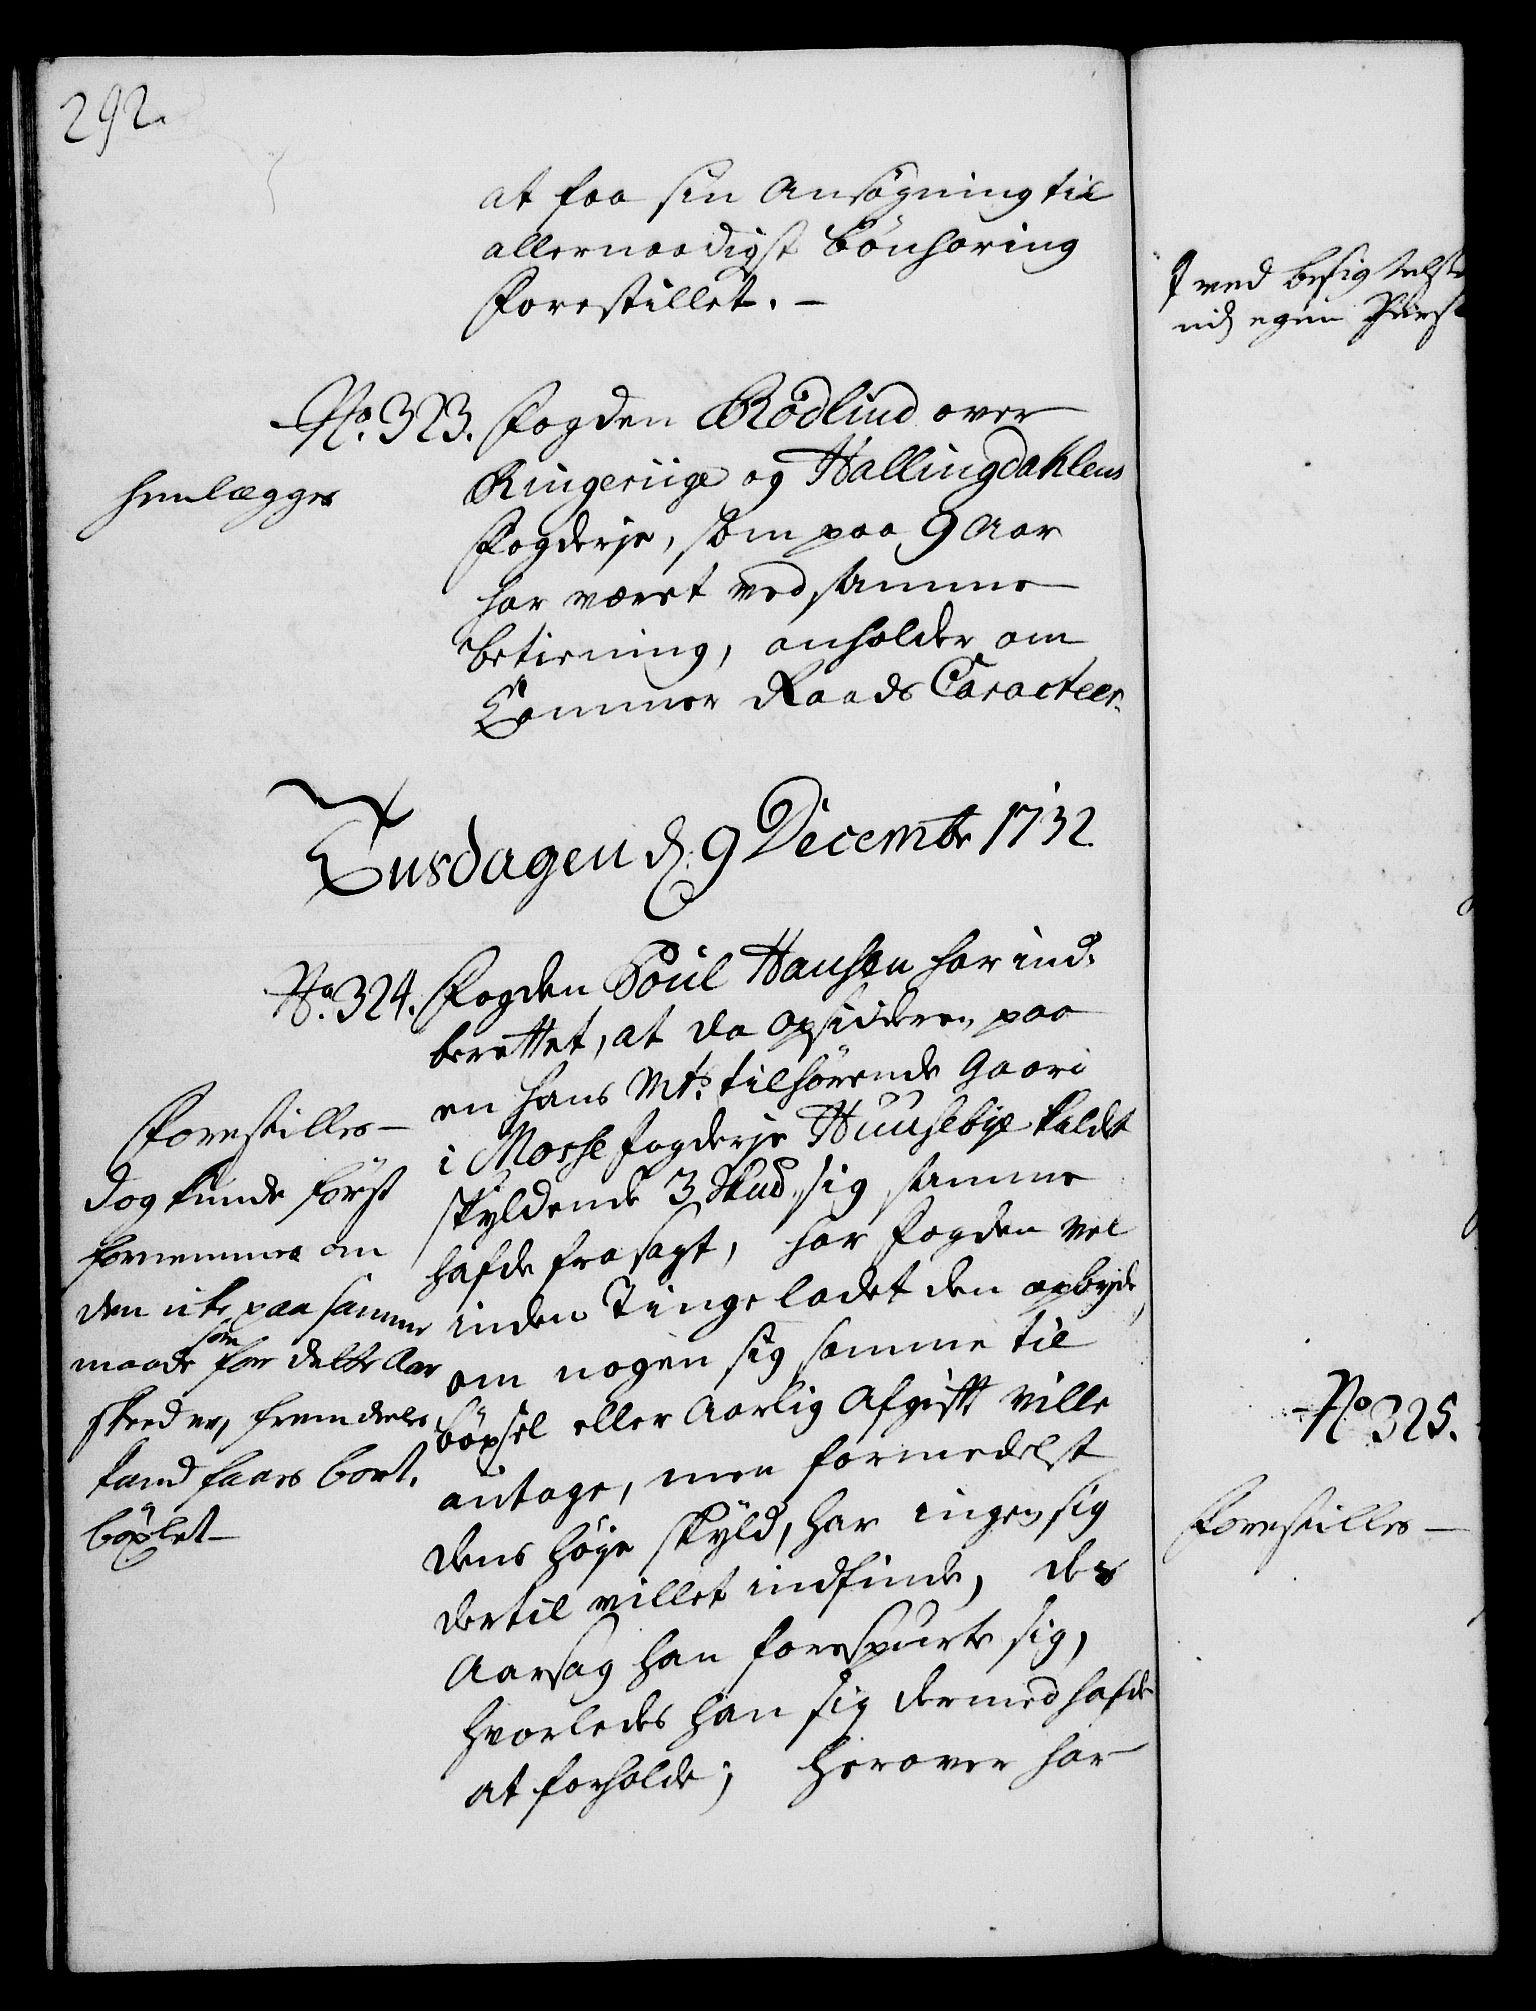 292.
at faa sin Ansøgning til
allernaadigst bönhøring
Forestillet. –
No. 323. Fogden Rödlind over
henlægges
Ringeriige og Hallingdahlens
Fogderje, som paa 9 Aar
har været ved samme
betiening, anholder om
Cammer Raads Caracteer.
Tiisdagen d. 9 Decembr 1732.
No. 324. Fogden Poul Hansen har ind-
berettet, at da opsidderen paa
en Hans Mts. tilhørende Gaard
i Mosse fogderje Huusebye kaldet
skyldende 3 Skud. sig samme
hafde frasagt, har fogden vel
inden Tinge ladet den opbyde,
om nogen sig samme til
böxsel eller Aarlig Afgift ville
antage, men formedelst
dens høye skyld, har ingen sig
dertil villet indfinde, des
Aarsag han forespurte sig,
hvorledes han sig dermed hafde
at forholde; herover har
Forestilles –
dog kunde först
fornemmes om
den icke paa samme
maade som for dette Aar
skeed er, fremdeles
kand faaes bort-
böxlet –
ved besigtelse
egen
No 325.
Forestilles –